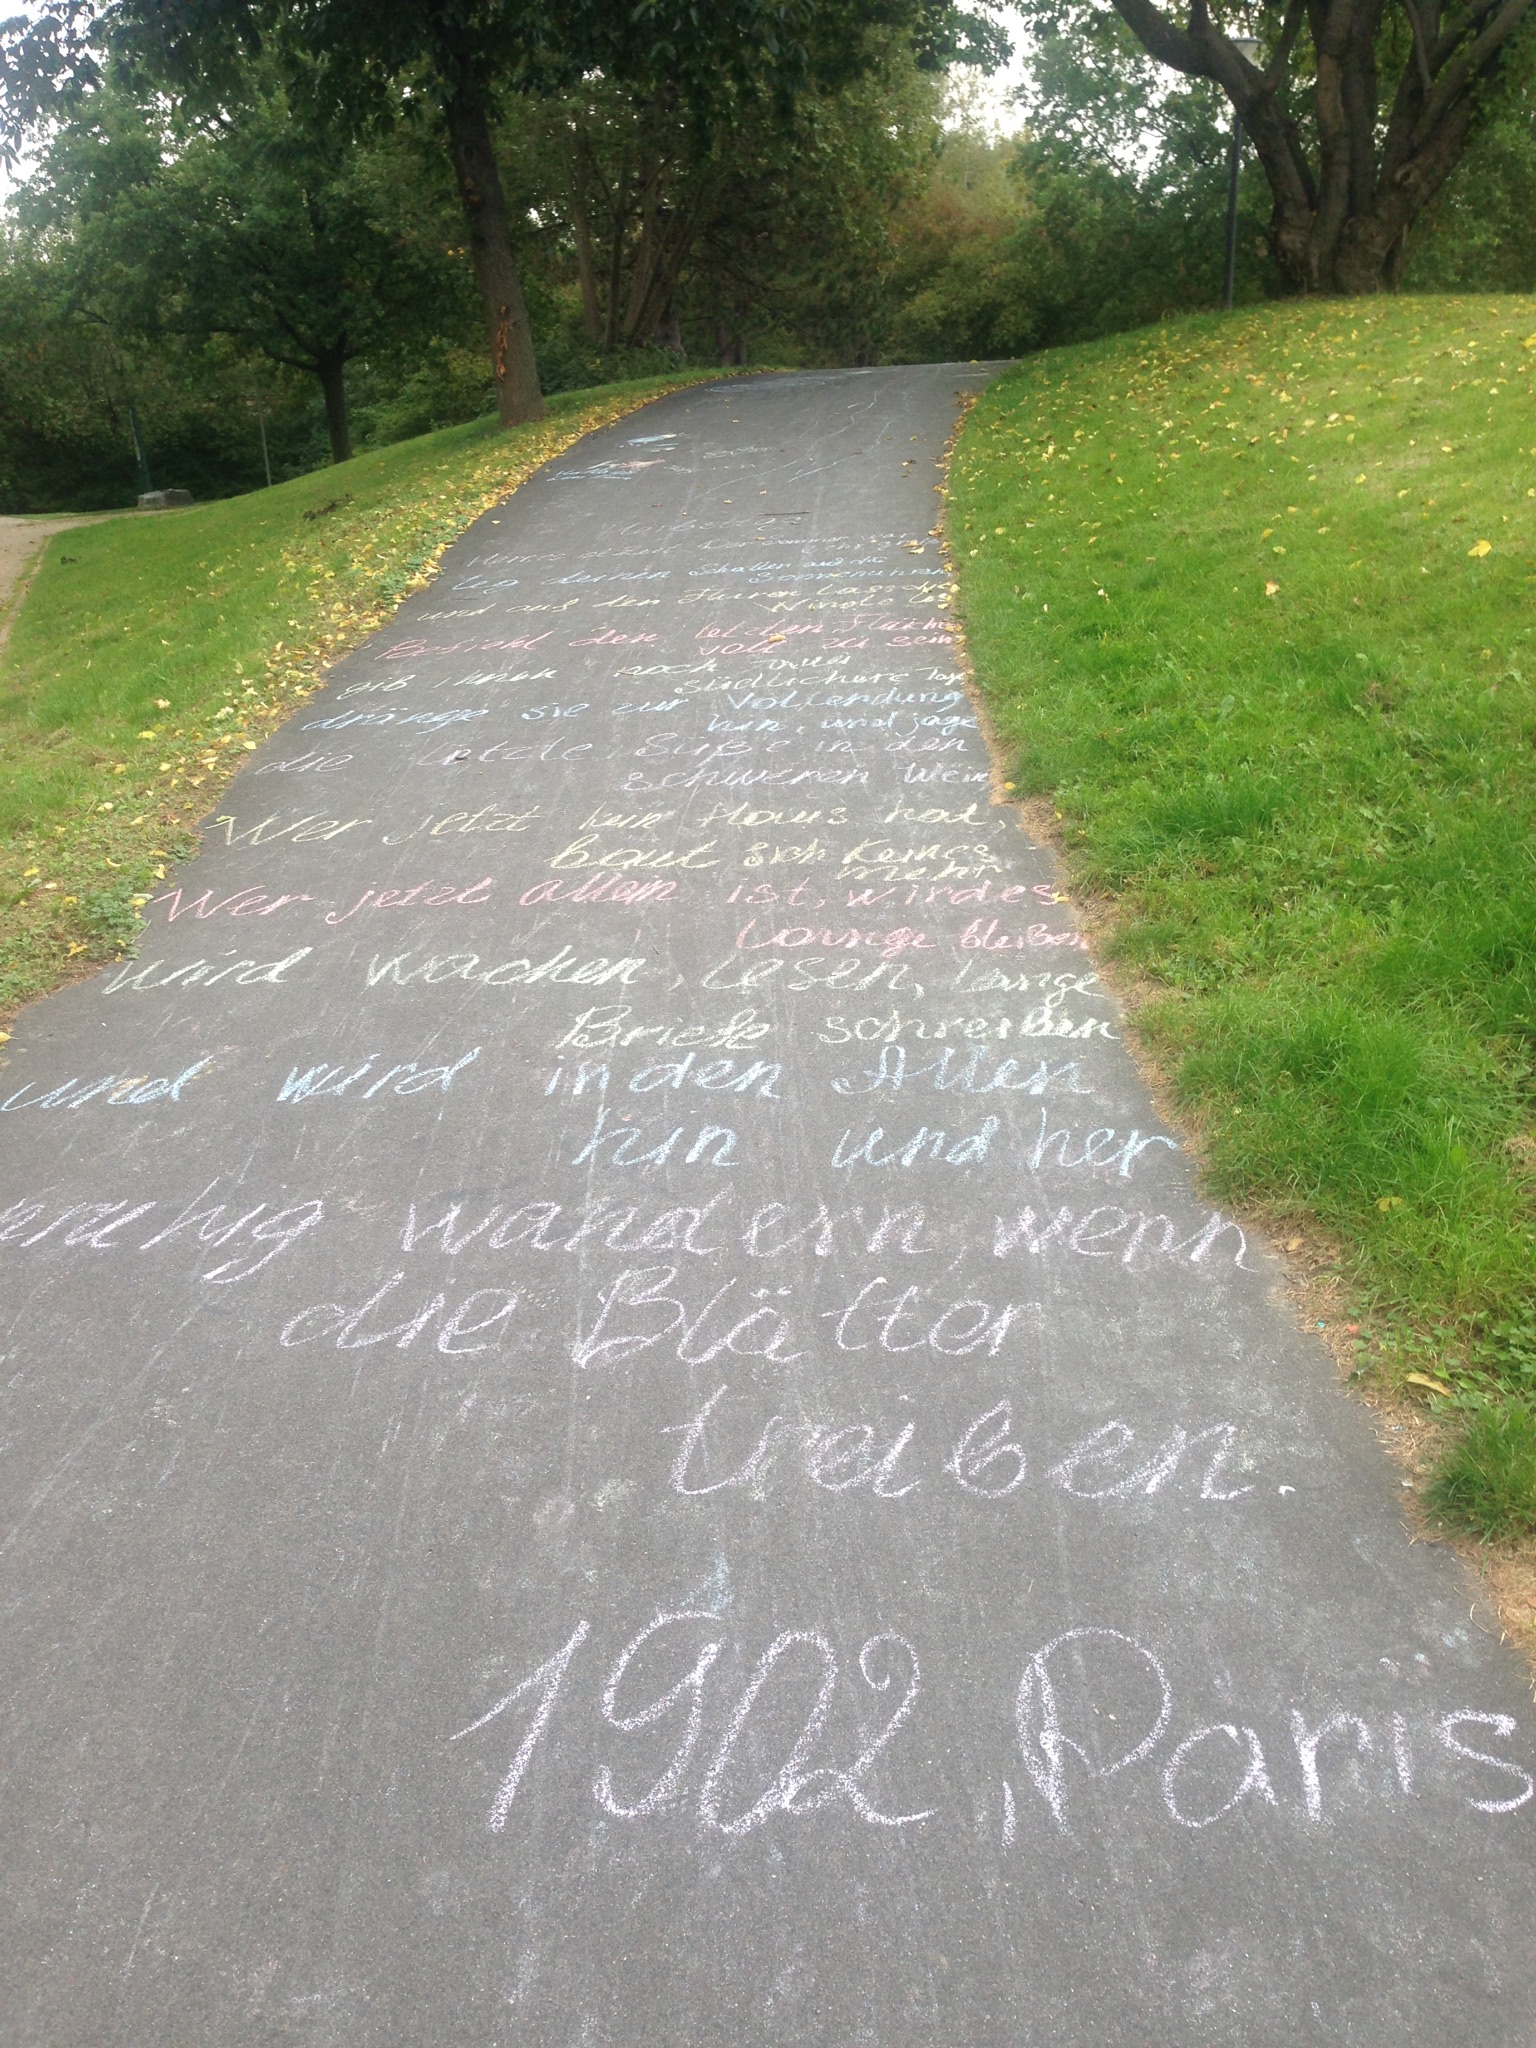 Herbsttag
Herr: es ist Zeit. Der Sommer war
leg deinen Schatten auf die
Sonnenuhren
und auf den Fluren lass die
Wind los
Befiehl den letzten Früchte
voll zu sein
gib ihnen noch zwei
südlichere Tage
dränge sie zur Vollendung
hin, und jage
die letzte Süße in den
schweren Wein
Wer jetzt kein Haus hat,
baut sich keines
mehr
Wer jetzt allein ist, wird es
lange bleiben
wird wachen, lesen, lange
Briefe schreiben
und wird in den Allen
hin und her
unruhig wandern, wenn
die Blätter
treiben.
1902, Paris